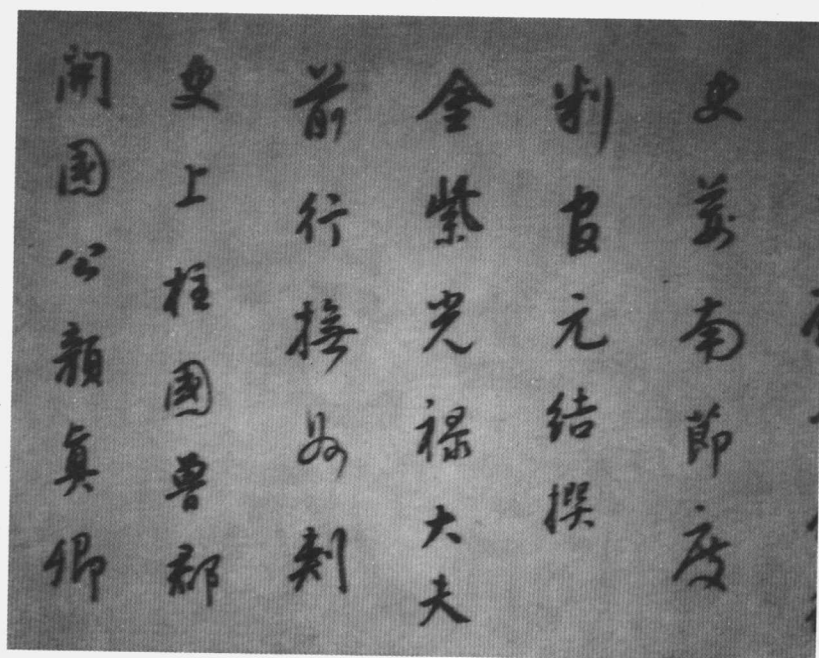 史荊南節度
判官元結撰
金紫光禄大夫
前行撫州刺
史上柱國魯郡
開國公顏眞卿